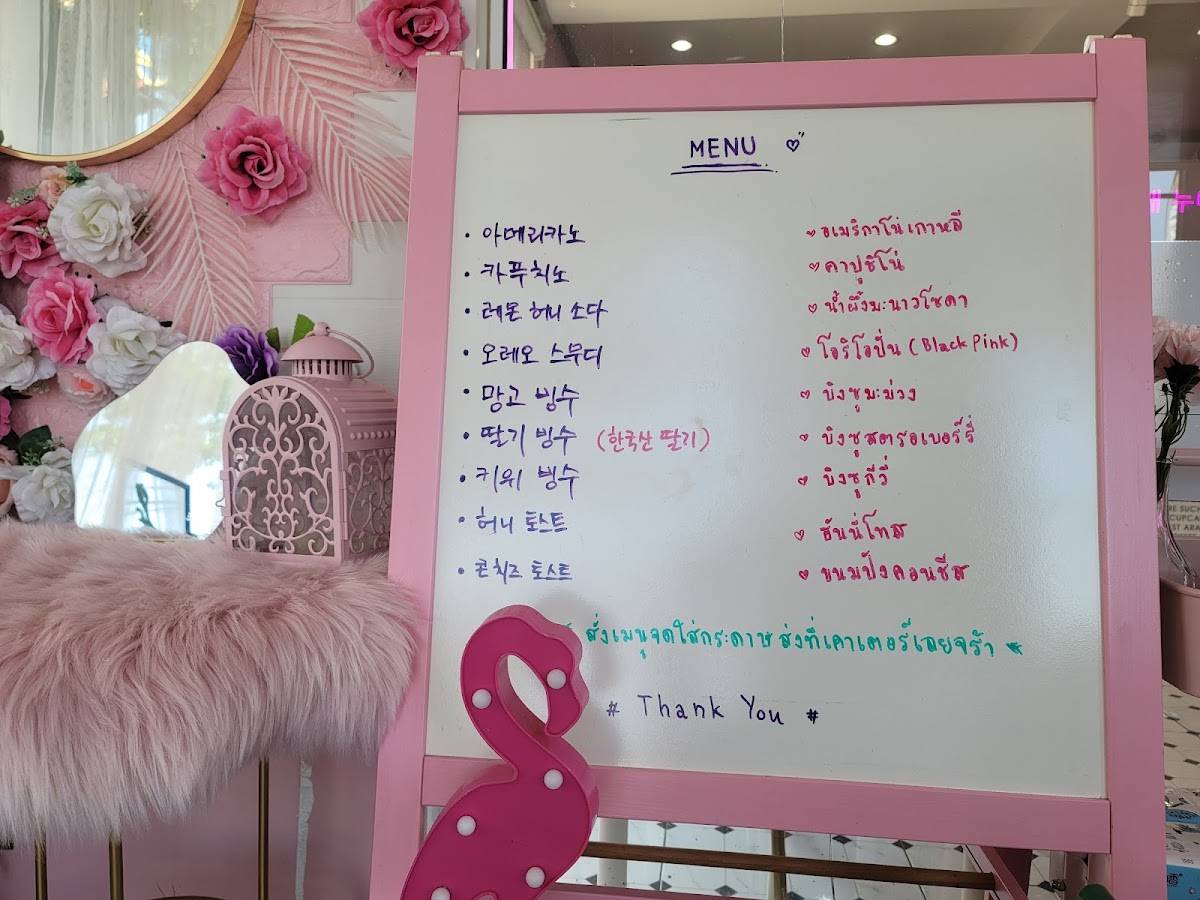 MENU
• 아메리카노
• 카푸치노
• 레몬 허니 소다
• 오레오 스무디
• 망고 빙수
• 딸기 빙수 (한국산 딸기)
• 키위 빙수
• 허니 토스트
• 콘치즈 토스트
♡ อเมริกาโน่เกาหลี
♡ คาปูชิโน่
♡ น้ำผึ้งมะนาวโซดา
♡ โอริโอปั่น (Black Pink)
♡ บิงซูมะม่วง
♡ บิงซูสตรอเบอร์รี่
♡ บิงซูกีวี่
♡ ฮันนี่โทส
♡ ขนมปังคอนชีส
สั่งเมนูจดใส่กระดาษส่งที่เคาเตอร์เลยจร้า
# Thank You #